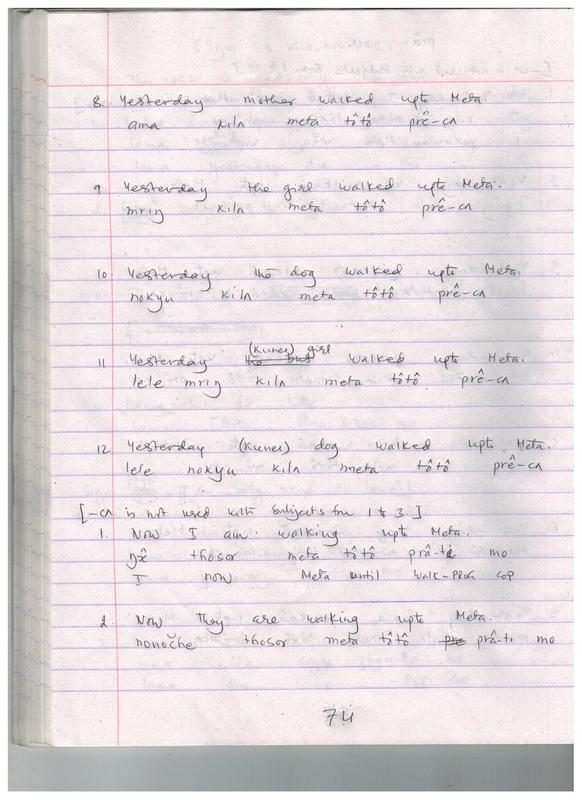 8. Yesterday mother walked upto Meta.
ama kilʌ meta tôtô prê-cʌ
9 Yesterday the girl walked upto Meta.
mriŋ kilʌ meta tôtô prê-cʌ
10 Yesterday the dog walked upto Meta.
nokyu kilʌ meta tôtô prê-cʌ
11 Yesterday (Kunes) girl walked upto Meta.
lele mriŋ kilʌ meta tôtô prê-cʌ
12 Yesterday (Kunes) dog walked upto Meta.
lele nokyu kilʌ meta tôtô prê-cʌ
[-cʌ is not used with subjects for 1 & 3.]
1. Now I am walking upto Meta.
thosor meta tôtô mo
I now Meta until walk-PROG COP
2. Now they are walking upto Meta.
nonoče thosor meta tôtô prâ-ti mo
74